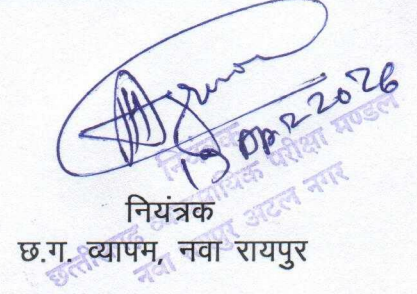 19 Apr 2026
नियंत्रक
छत्तीसगढ़ व्यावसायिक परीक्षा मण्डल
नवा रायपुर अटल नगर
नियंत्रक
छ.ग. व्यापम, नवा रायपुर